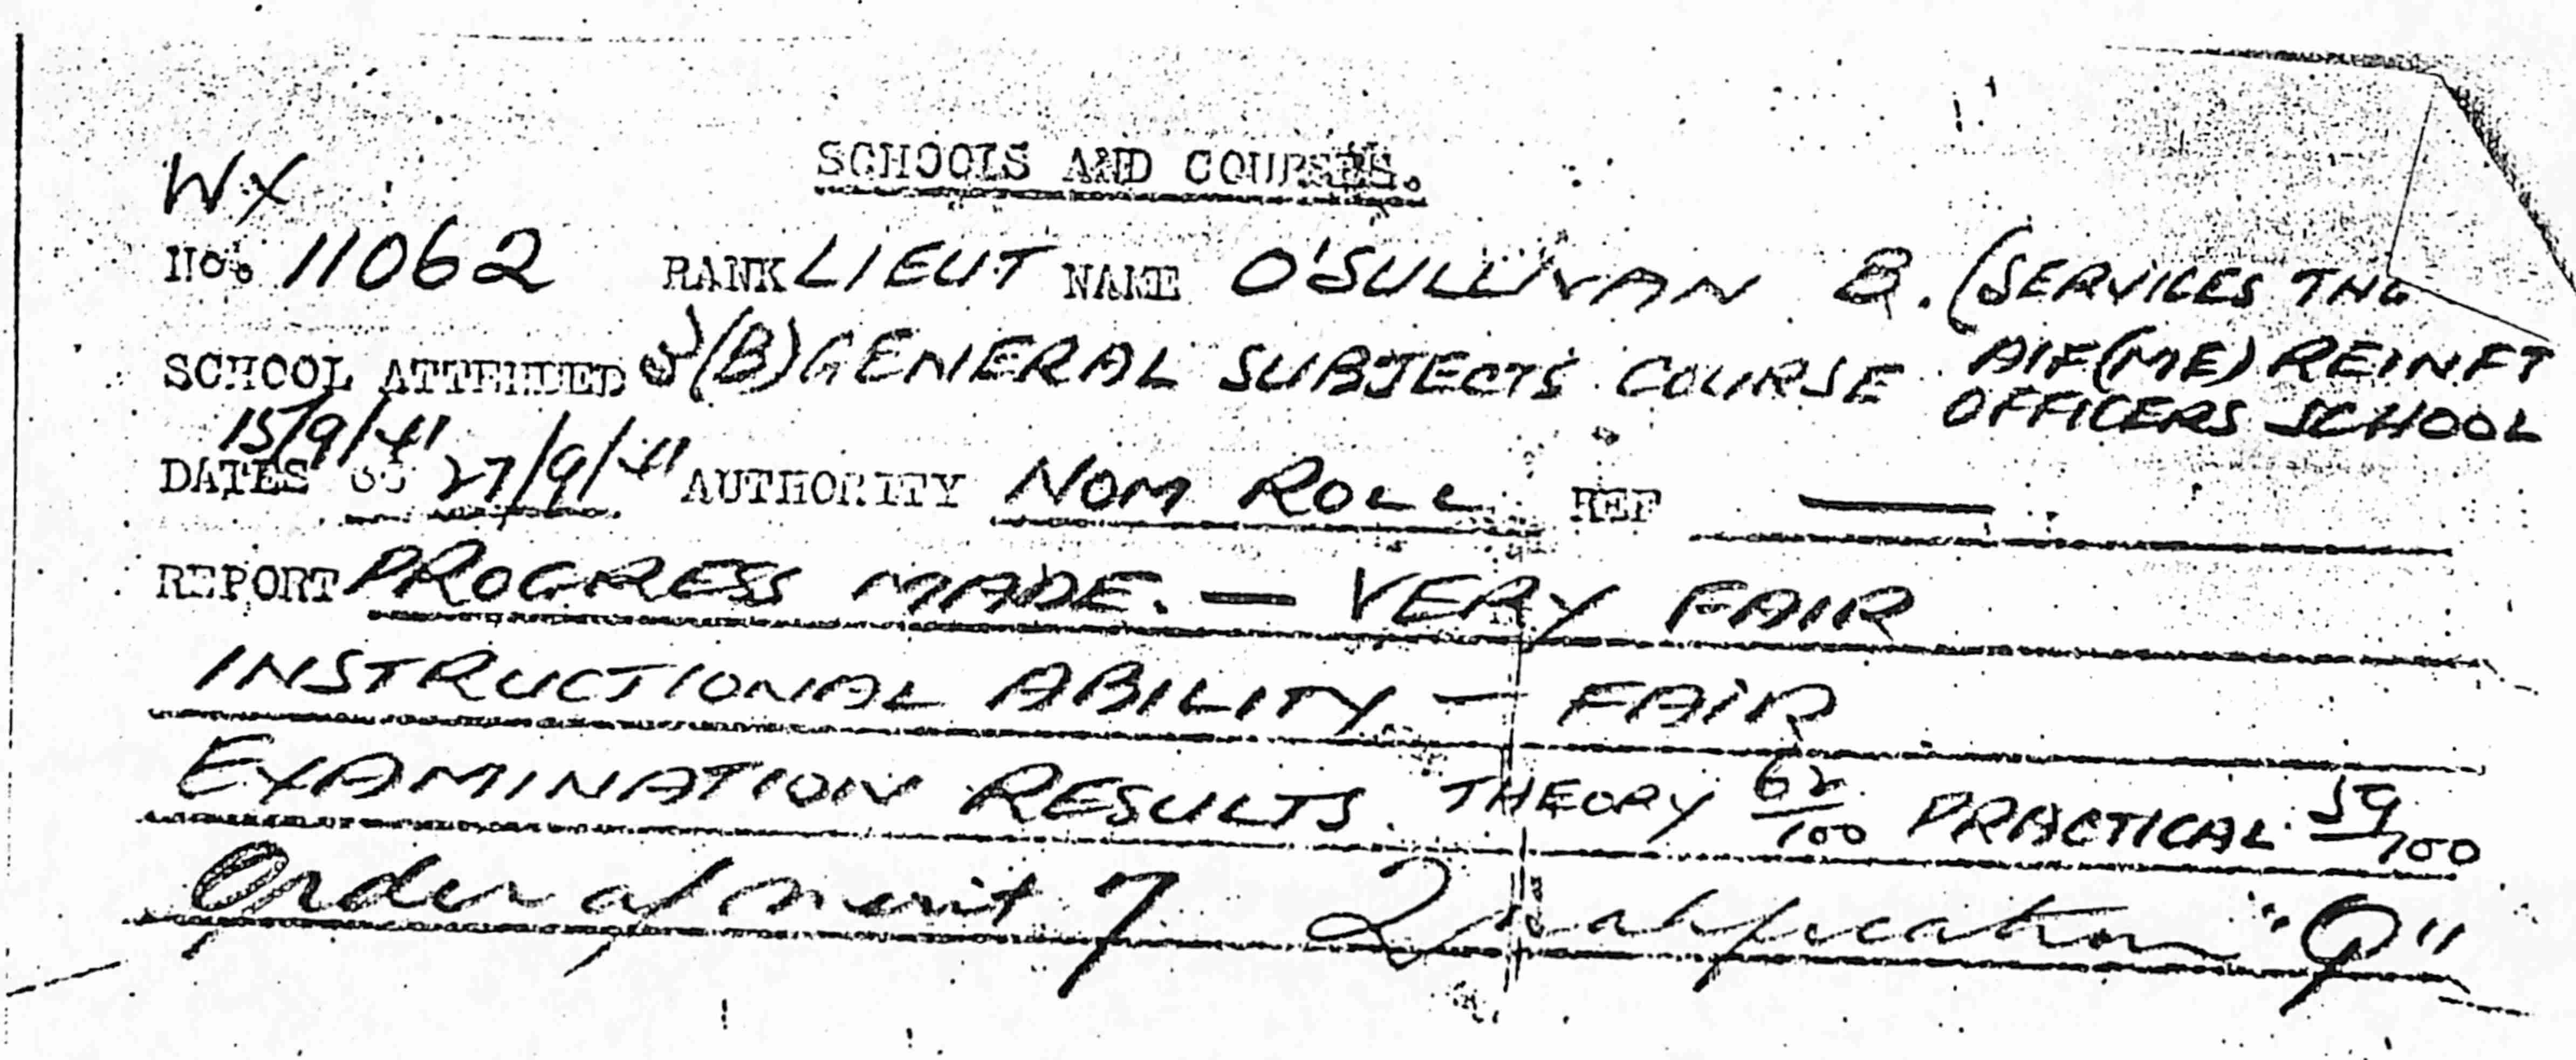 SCHOOLS AND COURSES.
WX
No. 11062 RANK LIEUT NAME O'SULLIVAN B. (SERVICES TNG
SCHOOL ATTENDED (B) GENERAL SUBJECTS COURSE AIF (ME) REINFT
OFFICERS SCHOOL
15/9/41
DATES 27/9/41 AUTHORITY NOM ROLL REF —
REPORT PROGRESS MADE. — VERY FAIR
INSTRUCTIONAL ABILITY — FAIR
EXAMINATION RESULTS. THEORY 62/100 PRACTICAL 59/100
Order of merit 7 Qualification "Q"